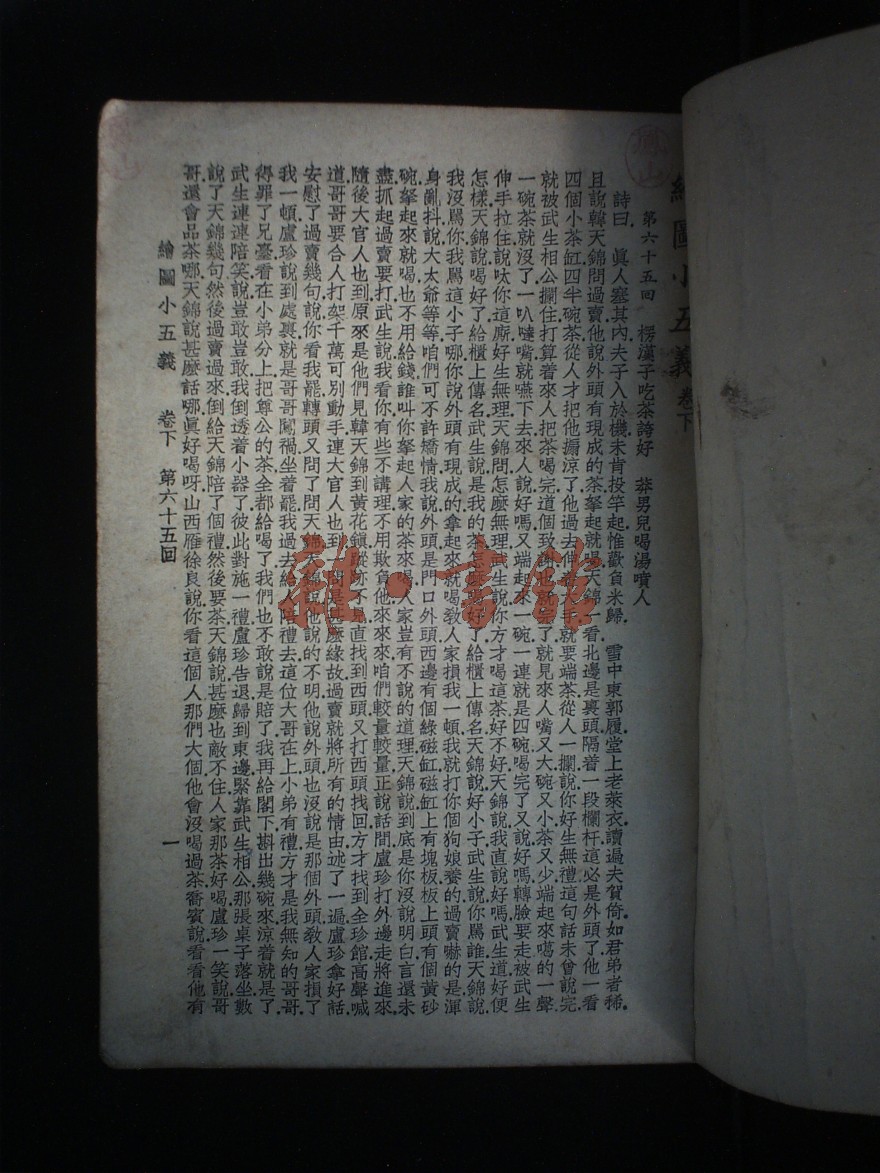 繪圖小五義 卷下
第六十五回 楞漢子吃茶誇好 莽男兒喝湯噴人
詩曰 眞人塞其內夫子入於機未肯投竿起惟歡負米歸 雪中東郭履堂上老萊衣讀遍夫賀倚如君弟者稀
且說韓天錦問過賣他說外頭有現成的茶拏起就喝天錦一看北邊是裏頭隔着一段欄杆這必是外頭了他一看
四個小茶缸四半碗茶從人才把他漏涼了他過去伸手就要端茶從人一攔說你好生無禮這句話未曾說完
就被武生相公攔住打算着來人把茶喝完道個致謝就完了就見來人嘴又大碗又小茶又少端起來噶的一聲
一碗茶就沒了一叭噠嘴就嚥下去來人說好嗎又端起來一碗一連就是四碗喝完了又說好嗎轉臉要走被武生
伸手拉住說呔你這廝好生無理天錦問怎麼無理武生說你方才喝這茶好不好天錦說我直說好嗎武生道好便
怎樣天錦說喝好了給櫃上傳名武生說是我的茶怎麼好了給櫃上傳名天錦說好小子武生說你罵誰天錦說
我沒罵你我罵這小子哪你說外頭有現成的拿起來就喝敎人家損我一頓我就打你個狗娘養的過賣嚇的是渾
身亂抖說大太爺等等咱們可不許矯情我說外頭是門口外頭西邊有個綠磁缸磁缸上有塊板板上頭有個黃砂
碗拏起來就喝也不用給錢誰叫你拏起人家的茶來喝人家豈有不說的道理天錦說到底是你沒說明白言還未
盡抓起過賣要打武生說我看你有些不講理不用欺負他來來來咱們較量較量正說話間盧珍打外邊走將進來
隨後大官人也到原來是他們見韓天錦到黃花鎭蹤跡不見直找到西頭又打西頭找回方才找到全珍館高聲喊
道哥哥要合人打架千萬可別動手連大官人也到一問是甚麼緣故過賣就將所有的情由述了一遍盧珍拿好話
安慰了過賣幾句說你看我罷轉頭又問了問天錦天錦說他說的不明他說外頭也沒說是那個外頭敎人家損了
我一頓盧珍說到處裏就是哥哥闖禍坐着罷我過去給人陪禮去這位大哥在上小弟有禮方才是我無知的哥哥
得罪了兄臺看在小弟分上把尊公的茶全都給喝了我們也不敢說是賠了我再給閣下斟出幾碗來涼着就是了
武生連連陪笑說豈敢豈敢我倒透着小器了彼此對施一禮盧珍告退歸到東邊緊靠武生相公那張桌子落坐數
說了天錦幾句然後過賣過來倒給天錦陪了個禮然後要茶天錦說甚麽也敵不住人家那茶好喝盧珍一笑說哥
哥還會品茶哪天錦說甚麼話哪眞好喝呀山西雁徐良說你看這個人那們大個他會沒喝過茶喬賓說看看他有
繪圖小五義 卷下 第六十五回 一
龍·書館